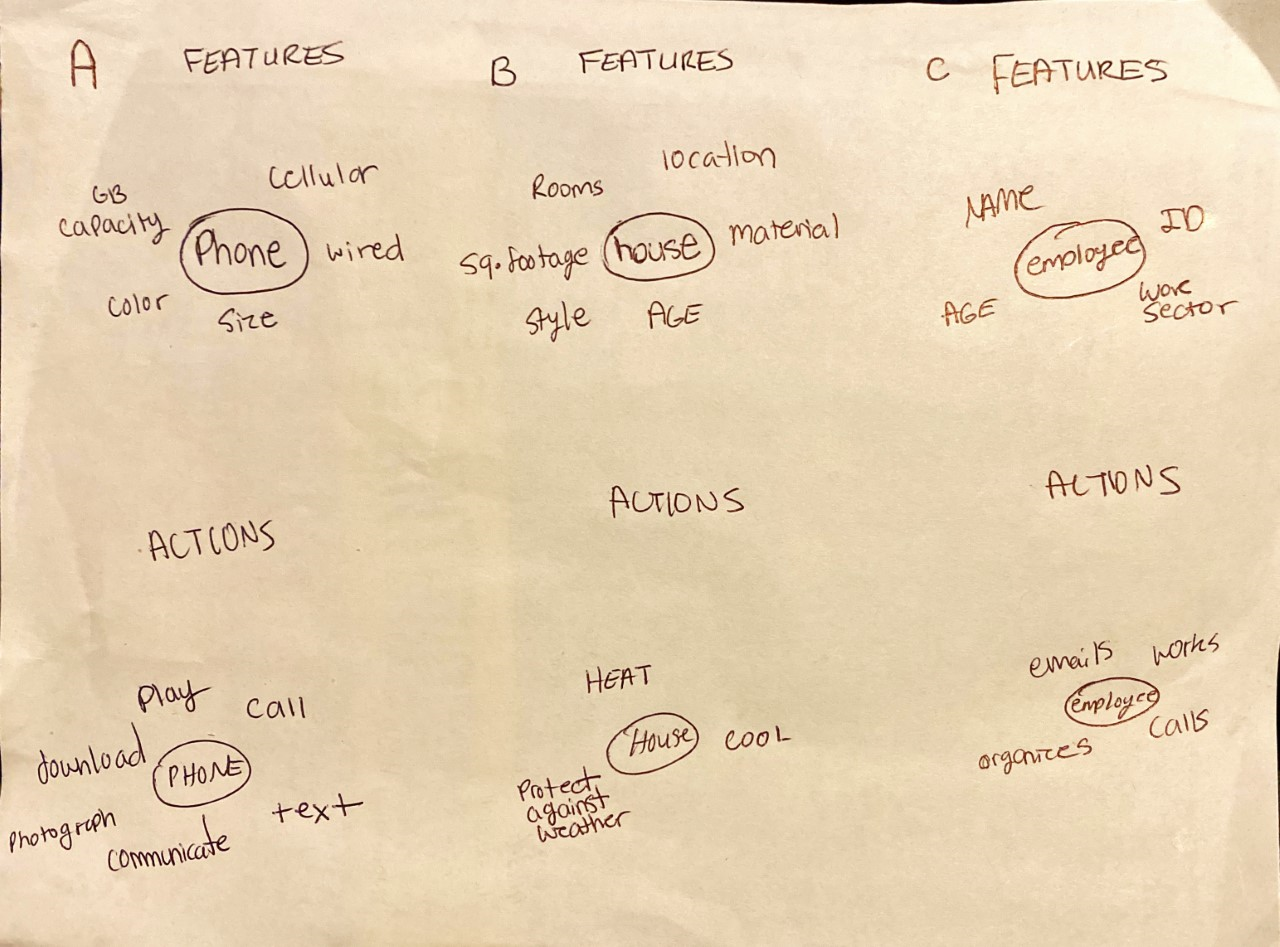 A FEATURES
GB
capacity
cellular
Phone
wired
color
size
ACTIONS
play
call
download
PHONE
photograph
communicate
text
B FEATURES
Rooms
location
sq. footage
house
material
style
AGE
ACTIONS
HEAT
House
COOL
Protect
against
weather
C FEATURES
NAME
ID
employee
AGE
work
sector
ACTIONS
emails
works
employee
organizes
calls